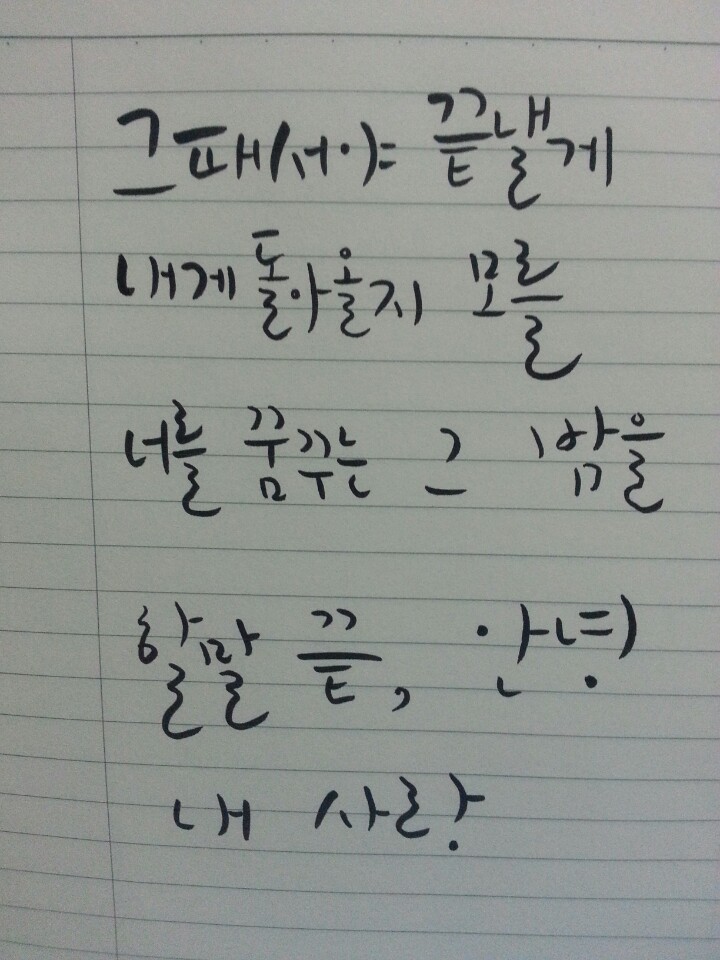 그때서야 끝낼게
내게 돌아올지 모를
너를 꿈꾸는 그 밤을
할말 끝, 안녕
내 사랑